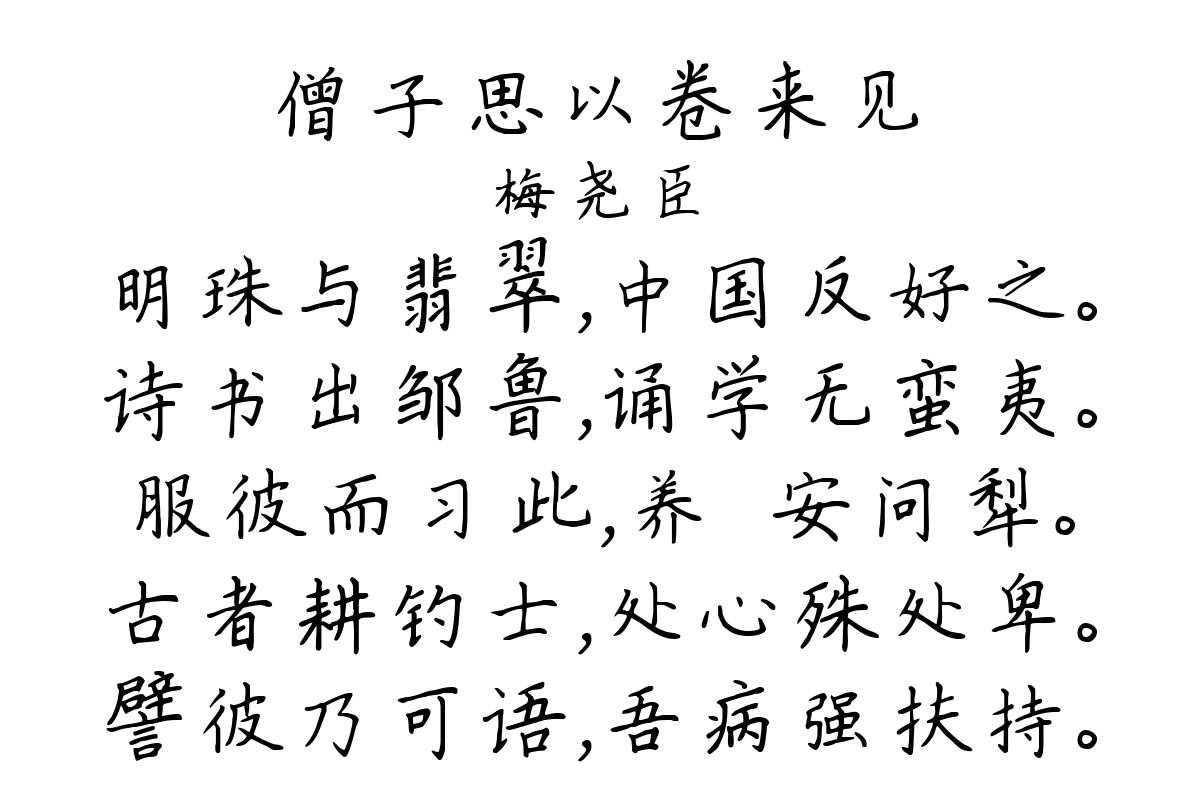 僧子思以卷来见
梅尧臣
明珠与翡翠,中国反好之。
诗书出邹鲁,诵学无蛮夷。
服彼而习此,养 安问犁。
古者耕钓士,处心殊处卑。
譬彼乃可语,吾病强扶持。